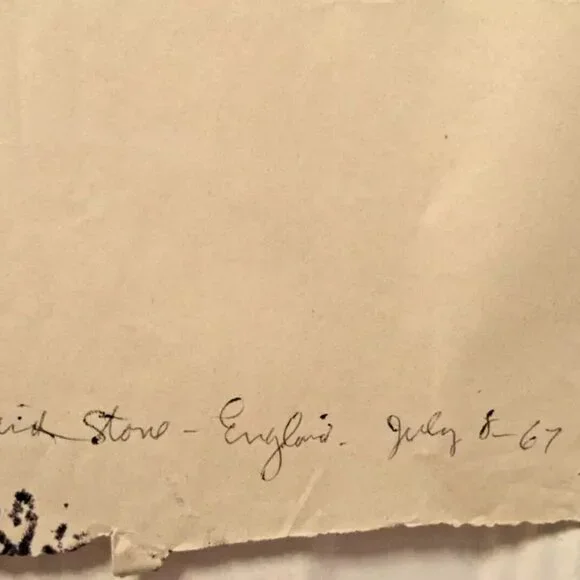 Stone - England. July 8-67